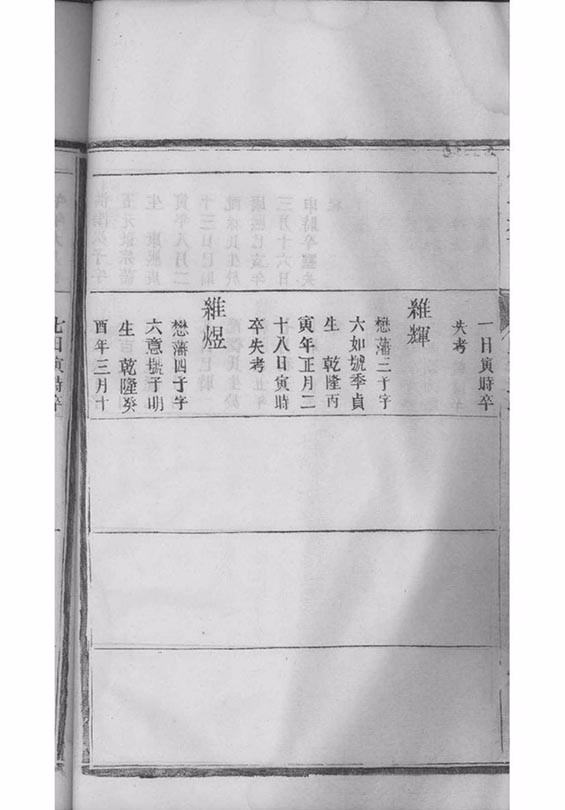 一日寅時卒
失考
維輝
懋藩三子字
六如號季貞
生 乾隆丙
寅年正月二
十八日寅時
卒失考
維煜
懋藩四子字
六意號子明
生 乾隆癸
酉年三月十
七日寅時卒